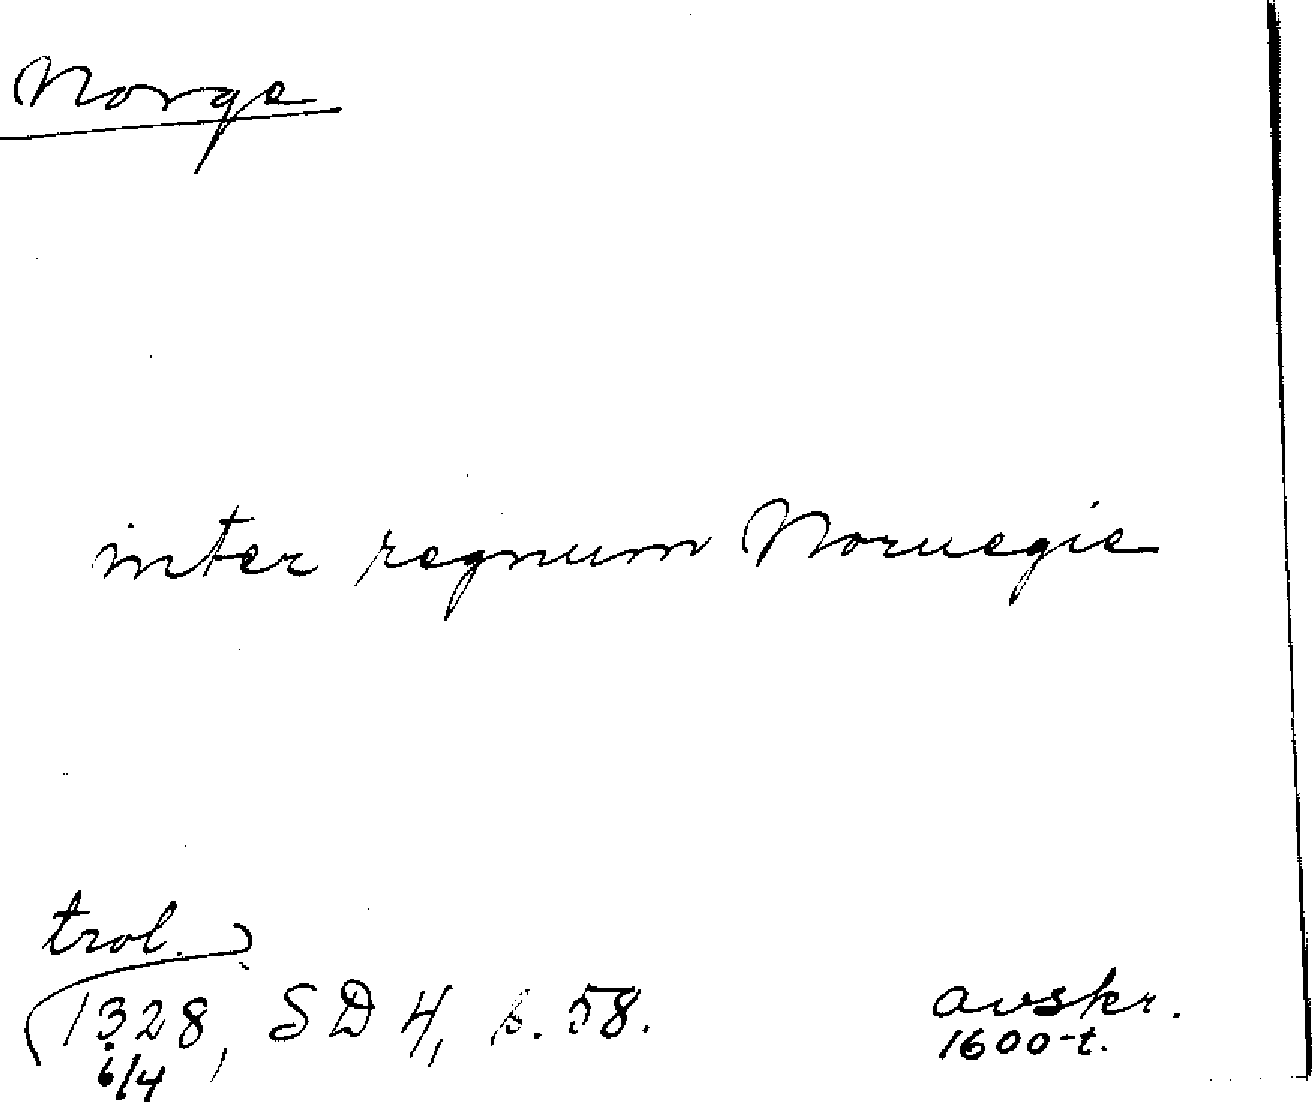 Norge
inter regnum Noruegie
trol.
1328, SD 4, s. 58.
6/4
avskr.
1600-t.